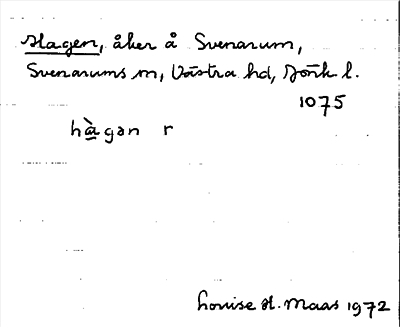 Hagen, åker å Svenarum,
Svenarums sn, Västra hd, Jönk l.
1075
hàgan r
Louise H. Maas 1972